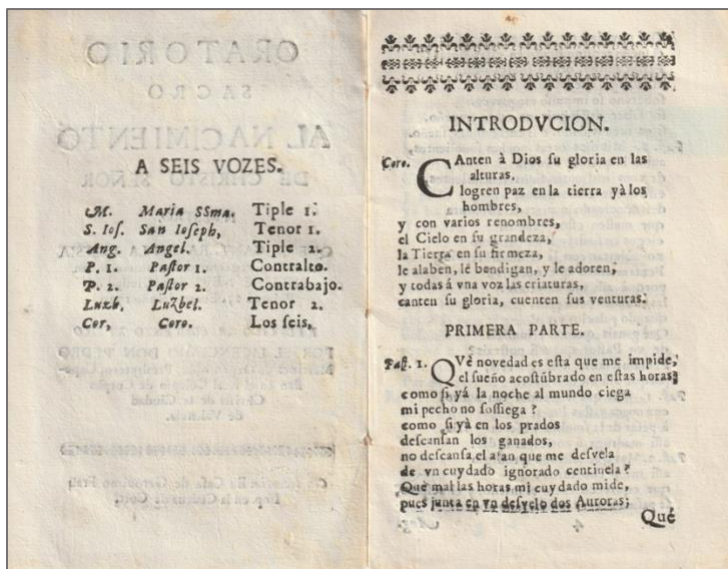 A SEIS VOZES.
M. Maria SSma. Tiple 1.
S. Ios. San Ioseph, Tenor 1.
Ang. Angel. Tiple 2.
P. 1. Pastor 1. Contralto.
P. 2. Pastor 2. Contrabajo.
Luzb, Luzbel. Tenor 2.
Cor, Coro. Los seis,
INTRODVCION.
Coro. CAnten à Dios su gloria en las
alturas,
logren paz en la tierra yà los
hombres,
y con varios renombres,
el Cielo en su grandeza,
la Tierra en su firmeza,
le alaben, lè bendigan, y le adoren,
y todas á vna voz las criaturas,
canten su gloria, cuenten sus venturas.
PRIMERA PARTE.
Past. 1. QVè novedad es esta que me impide,
el sueño acostúbrado en estas horas,
como si yá la noche al mundo ciega
mi pecho no sossiega?
como si yà en los prados
descansan los ganados,
no descansa el afan que me desvela
de vn cuydado ignorado centinela?
Què mal las horas mi cuydado mide,
pues junta en vn desvelo dos Auroras;
Qué